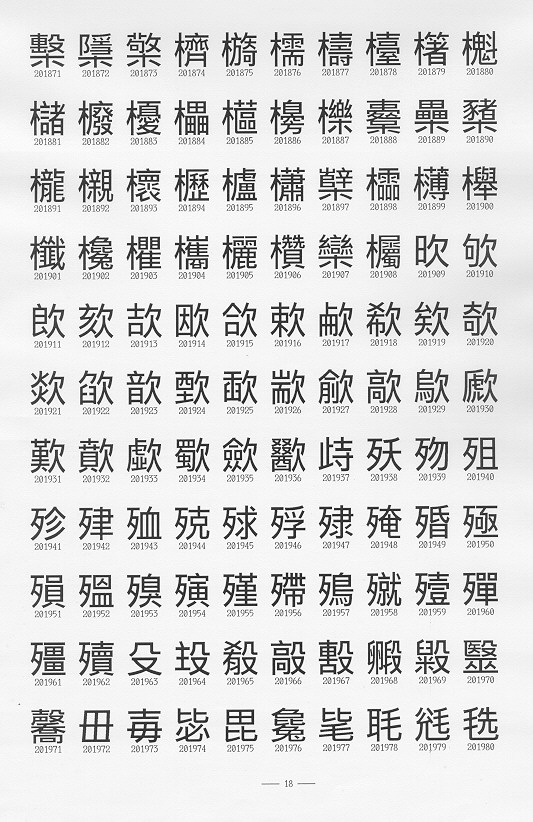 檕 檃 檠 櫅 檹 檽 檮 檯 櫡 櫆
201871 201872 201873 201874 201875 201876 201877 201878 201879 201880
櫧 橃 櫌 櫑 櫙 櫋 櫟 櫜 櫐 櫫
201881 201882 201883 201884 201885 201886 201887 201888 201889 201890
櫳 櫬 櫰 櫪 櫨 櫹 櫱 櫺 欂 櫸
201891 201892 201893 201894 201895 201896 201897 201898 201899 201900
櫼 欃 欋 欈 欐 欑 欒 欘 欥 欨
201901 201902 201903 201904 201905 201906 201907 201908 201909 201910
欴 欬 欯 欭 欱 欶 歃 欷 欸 欹
201911 201912 201913 201914 201915 201916 201917 201918 201919 201920
欻 欿 歆 歅 歃 歂 歈 歊 歍 歋
201921 201922 201923 201924 201925 201926 201927 201928 201929 201930
歎 歕 歔 歜 歛 歠 歭 殀 歾 殂
201931 201932 201933 201934 201935 201936 201937 201938 201939 201940
殄 肂 殈 殑 殏 殍 殔 殗 殙 殛
201941 201942 201943 201944 201945 201946 201947 201948 201949 201950
殞 殟 殠 殥 殣 殢 殦 殧 殪 殫
201951 201952 201953 201954 201955 201956 201957 201958 201959 201960
殭 殰 殳 𣪂 殽 毃 毄 毈 毇 毉
201961 201962 201963 201964 201965 201966 201967 201968 201969 201970
毊 毌 毐 毖 毘 毚 毞 毦 毨
201971 201972 201973 201974 201975 201976 201977 201978 201979 201980
— 18 —